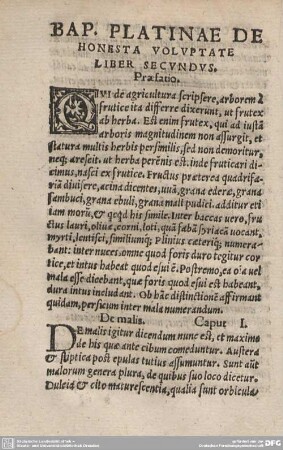 BAP. PLATINAE DE
HONESTA VOLVPTATE
LIBER SECVNDVS.
Præfatio.
QVI de agricultura scripsere, arborem à
frutice ita differre dixerunt, ut frutex
ab herba. Est enim frutex, qui ad iustā
arboris magnitudinem non assurgit, et
statura multis herbis persimilis, sed non demoritur,
neq; arescit. ut herba perēnis est. inde fruticari di-
cimus, nasci ex frutice. Fructus præterea quadrifa-
riā diuisere, acina dicentes, uuā, grana ederæ, grana
sambuci, grana ebuli, grana mali pudici. additur et
iam morū, & qcqd his simile. Inter baccas uero, fru
ctus lauri, oliuæ, corni, loti, quā fabā syriacā uocant,
myrti, lentisci, similiumq; Plinius cæteriq; numera-
bant: inter nuces. omne quod foris duro tegitur cor-
tice, et intus habeat quod esui ē. Postremo, ea oīa uel
mala esse dicebant, quæ foris quod esui est habeant,
dura intus includant. Ob hāc distinctionē affirmant
quidam, persicum inter mala numerandum.
De malis. Caput I.
DE malis igitur dicendum nunc est, et maxime
de his quæ ante cibum comeduntur. Austera
& stiptica post epulas tutius assumuntur. Sunt aūt
malorum genera plura, de quibus suo loco dicetur.
Dulcia & cito maturescentia, qualia sunt orbicula